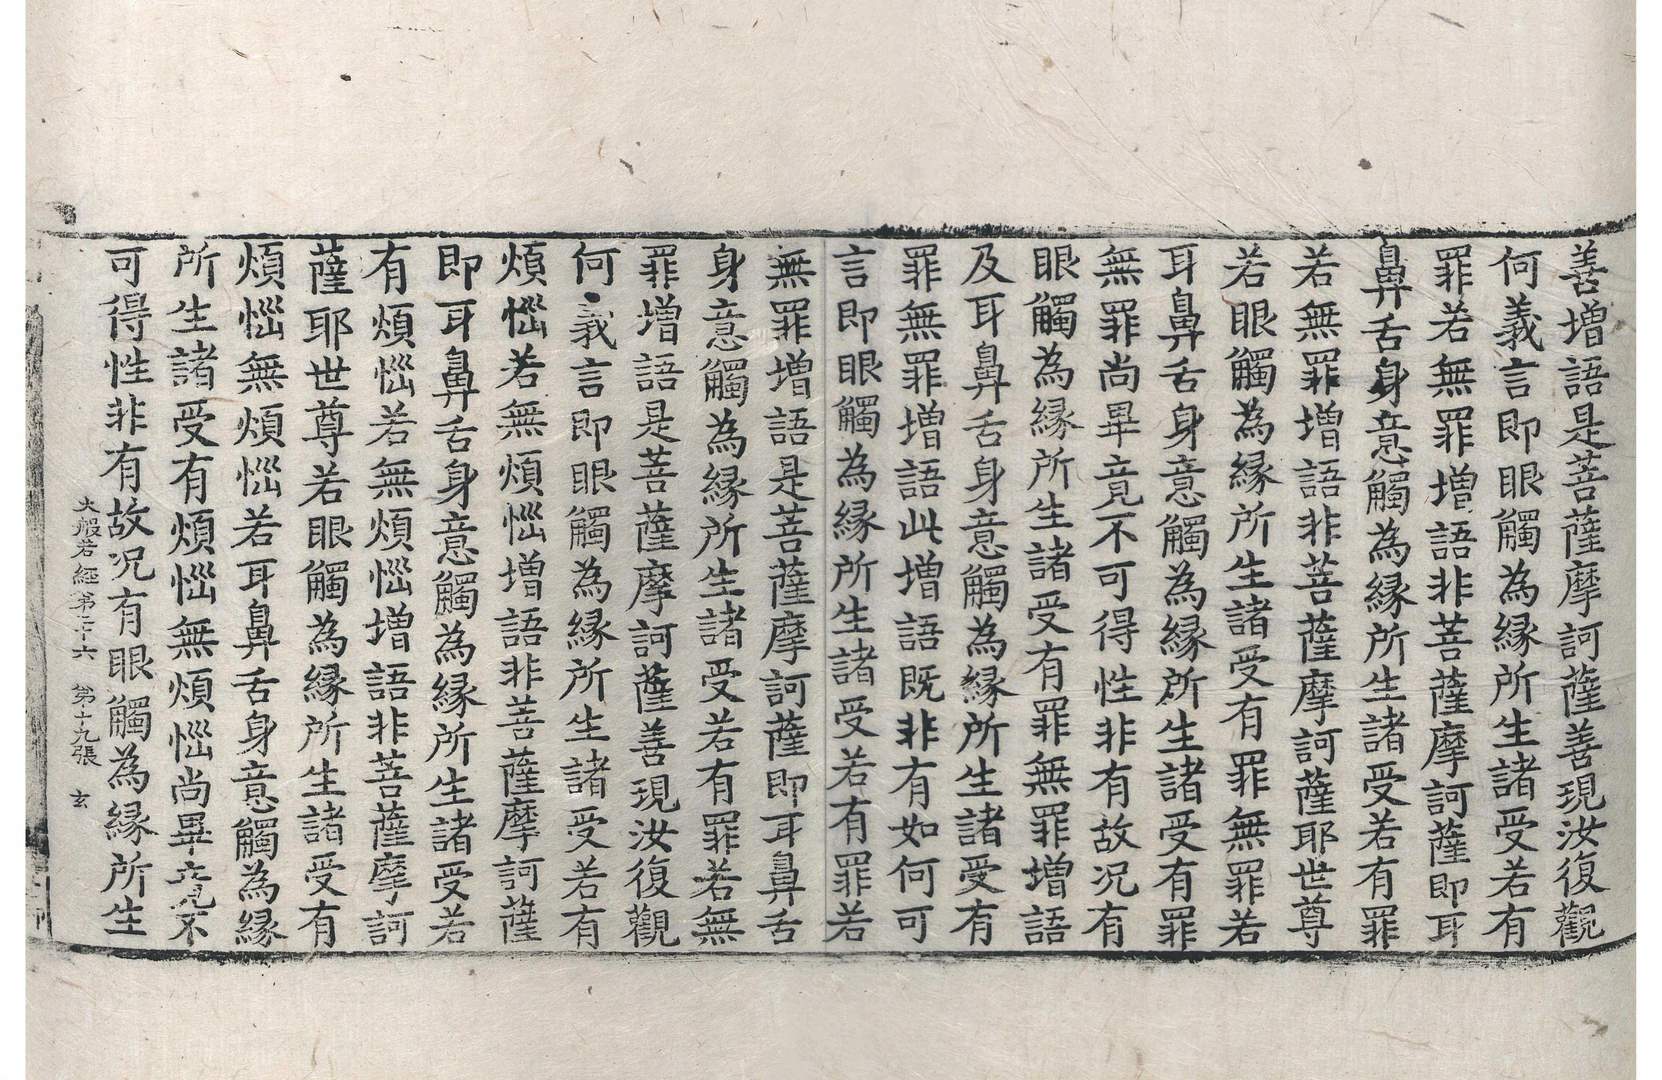 善增語是菩薩摩訶薩善現汝復觀
何義言即眼觸為緣所生諸受若有
罪若無罪增語非菩薩摩訶薩即耳
鼻舌身意觸為緣所生諸受若有罪
若無罪增語非菩薩摩訶薩耶世尊
若眼觸為緣所生諸受有罪無罪若
耳鼻舌身意觸為緣所生諸受有罪
無罪尚畢竟不可得性非有故況有
眼觸為緣所生諸受有罪無罪增語
及耳鼻舌身意觸為緣所生諸受有
罪無罪增語此增語既非有如何可
言即眼觸為緣所生諸受若有罪若
無罪增語是菩薩摩訶薩即耳鼻舌
身意觸為緣所生諸受若有罪若無
罪增語是菩薩摩訶薩善現汝復觀
何義言即眼觸為緣所生諸受若有
煩惱若無煩惱增語非菩薩摩訶薩
即耳鼻舌身意觸為緣所生諸受若
有煩惱若無煩惱增語非菩薩摩訶
薩耶世尊若眼觸為緣所生諸受有
煩惱無煩惱若耳鼻舌身意觸為緣
所生諸受有煩惱無煩惱尚畢竟不
可得性非有故況有眼觸為緣所生
大般若經第二十六 第十九張 玄